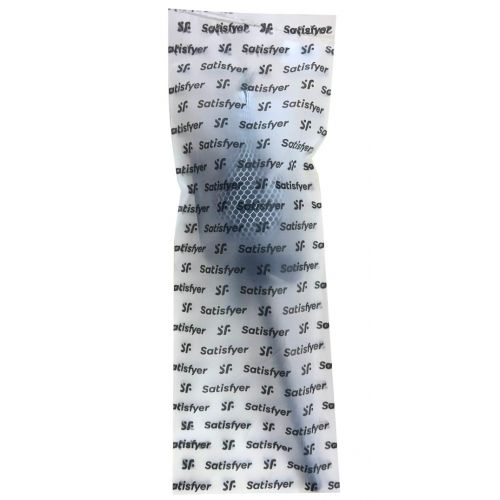 SF Satisfyer SF
SF Satisfyer SF
Satisfyer SF Satisfyer
SF Satisfyer SF
Satisfyer SF Satisfyer
SF Satisfyer SF
Satisfyer SF Satisfyer
SF Satisfyer SF
Satisfyer SF Satisfyer
SF Satisfyer SF
Satisfyer SF Satisfyer
SF Satisfyer SF
Satisfyer SF Satisfyer
SF Satisfyer SF
Satisfyer SF Satisfyer
SF Satisfyer SF
Satisfyer SF Satisfyer
SF Satisfyer SF
Satisfyer SF Satisfyer
SF Satisfyer SF
Satisfyer SF Satisfyer
SF Satisfyer SF